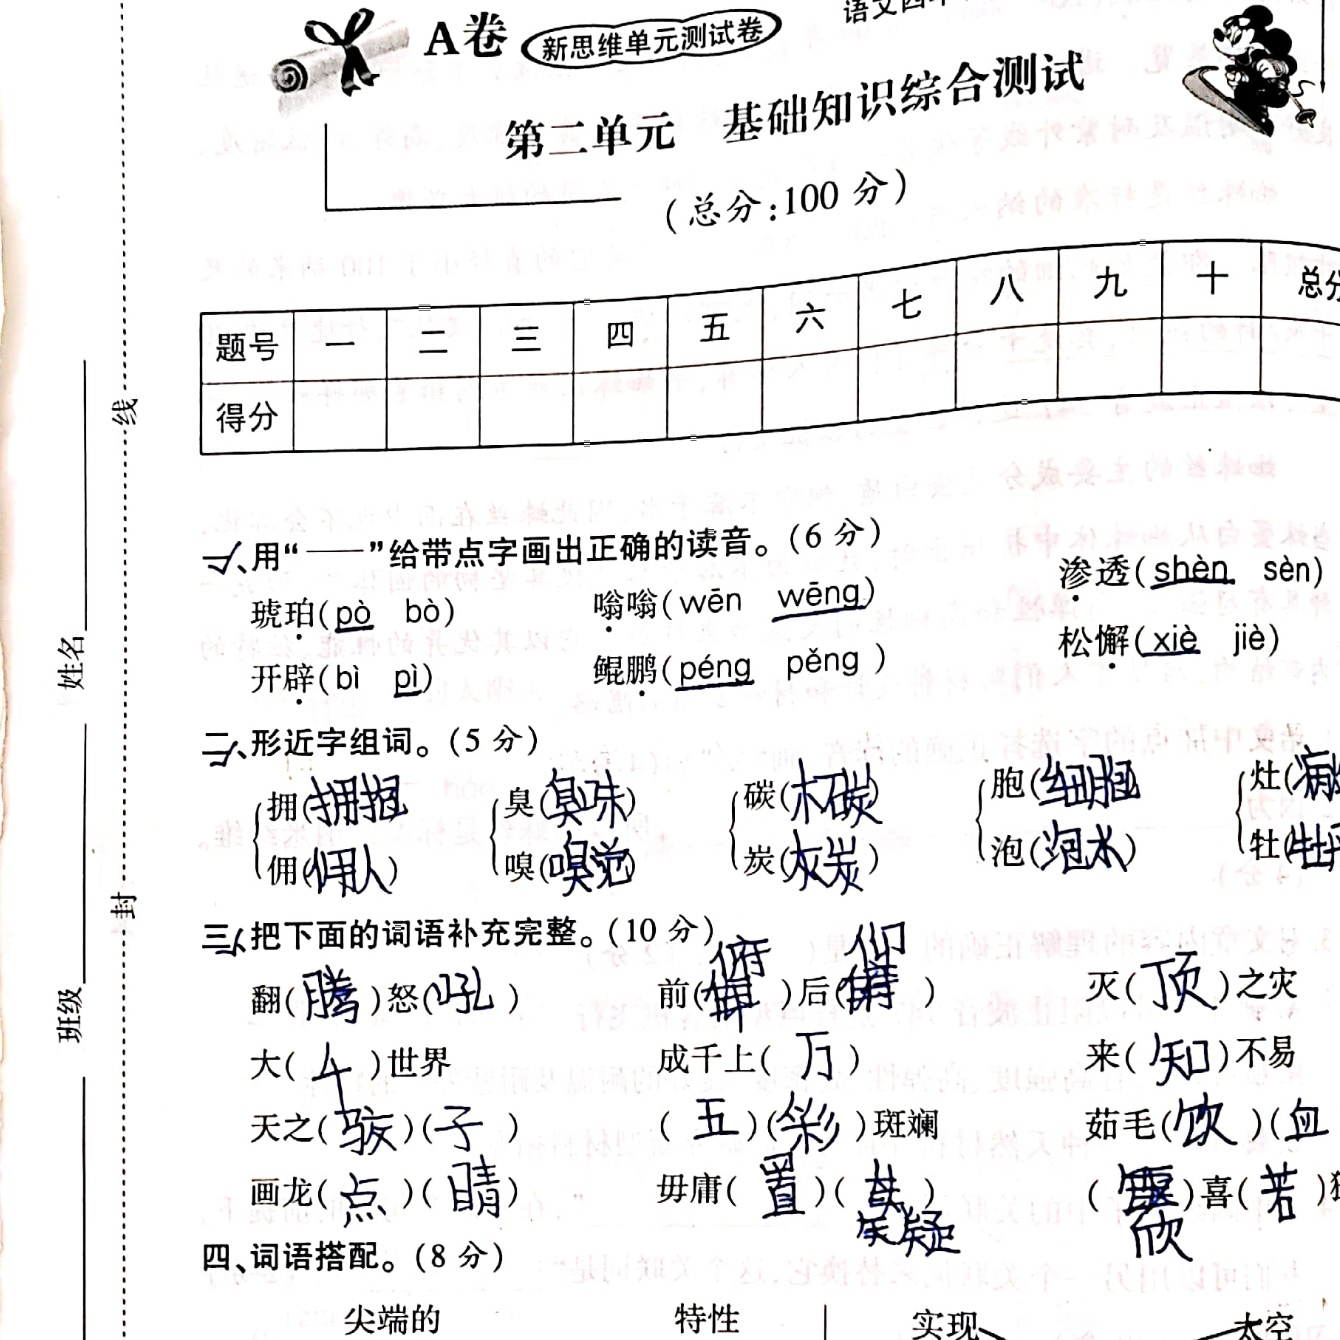 A卷 新思维单元测试卷
第二单元 基础知识综合测试
(总分:100分)
题号 一 二 三 四 五 六 七 八 九 十 总分
得分
一、用“——”给带点字画出正确的读音。(6分)
琥珀(pò bò) 嗡嗡(wēn wēng) 渗透(shèn sèn)
开辟(bì pì) 鲲鹏(péng pěng) 松懈(xiè jiè)
二、形近字组词。(5分)
拥(拥抱) 臭( ) 碳(木碳) 胞(细胞) 灶(
佣(佣人) 嗅(嗅觉) 炭(灰炭) 泡(泡水) 牡(牡丹
三、把下面的词语补充完整。(10分)
翻(腾)怒(吼) 前(俯)后(仰) 灭(顶)之灾
大(千)世界 成千上(万) 来(知)不易
天之(骄)(子) (五)(彩)斑斓 茹毛(饮)(血
画龙(点)(睛) 毋庸(置)( 疑) (欣)喜(若)狂
四、词语搭配。(8分)
尖端的 特性 实现 太空
线
封
姓名
班级